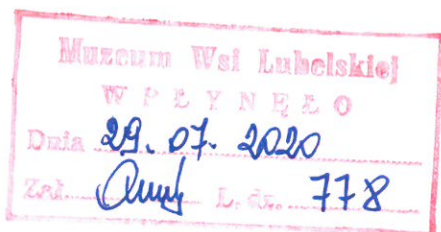 Muzeum Wsi Lubelskiej
WPŁYNĘŁO
Dnia 29. 07. 2020
Zał. L. dz. 778